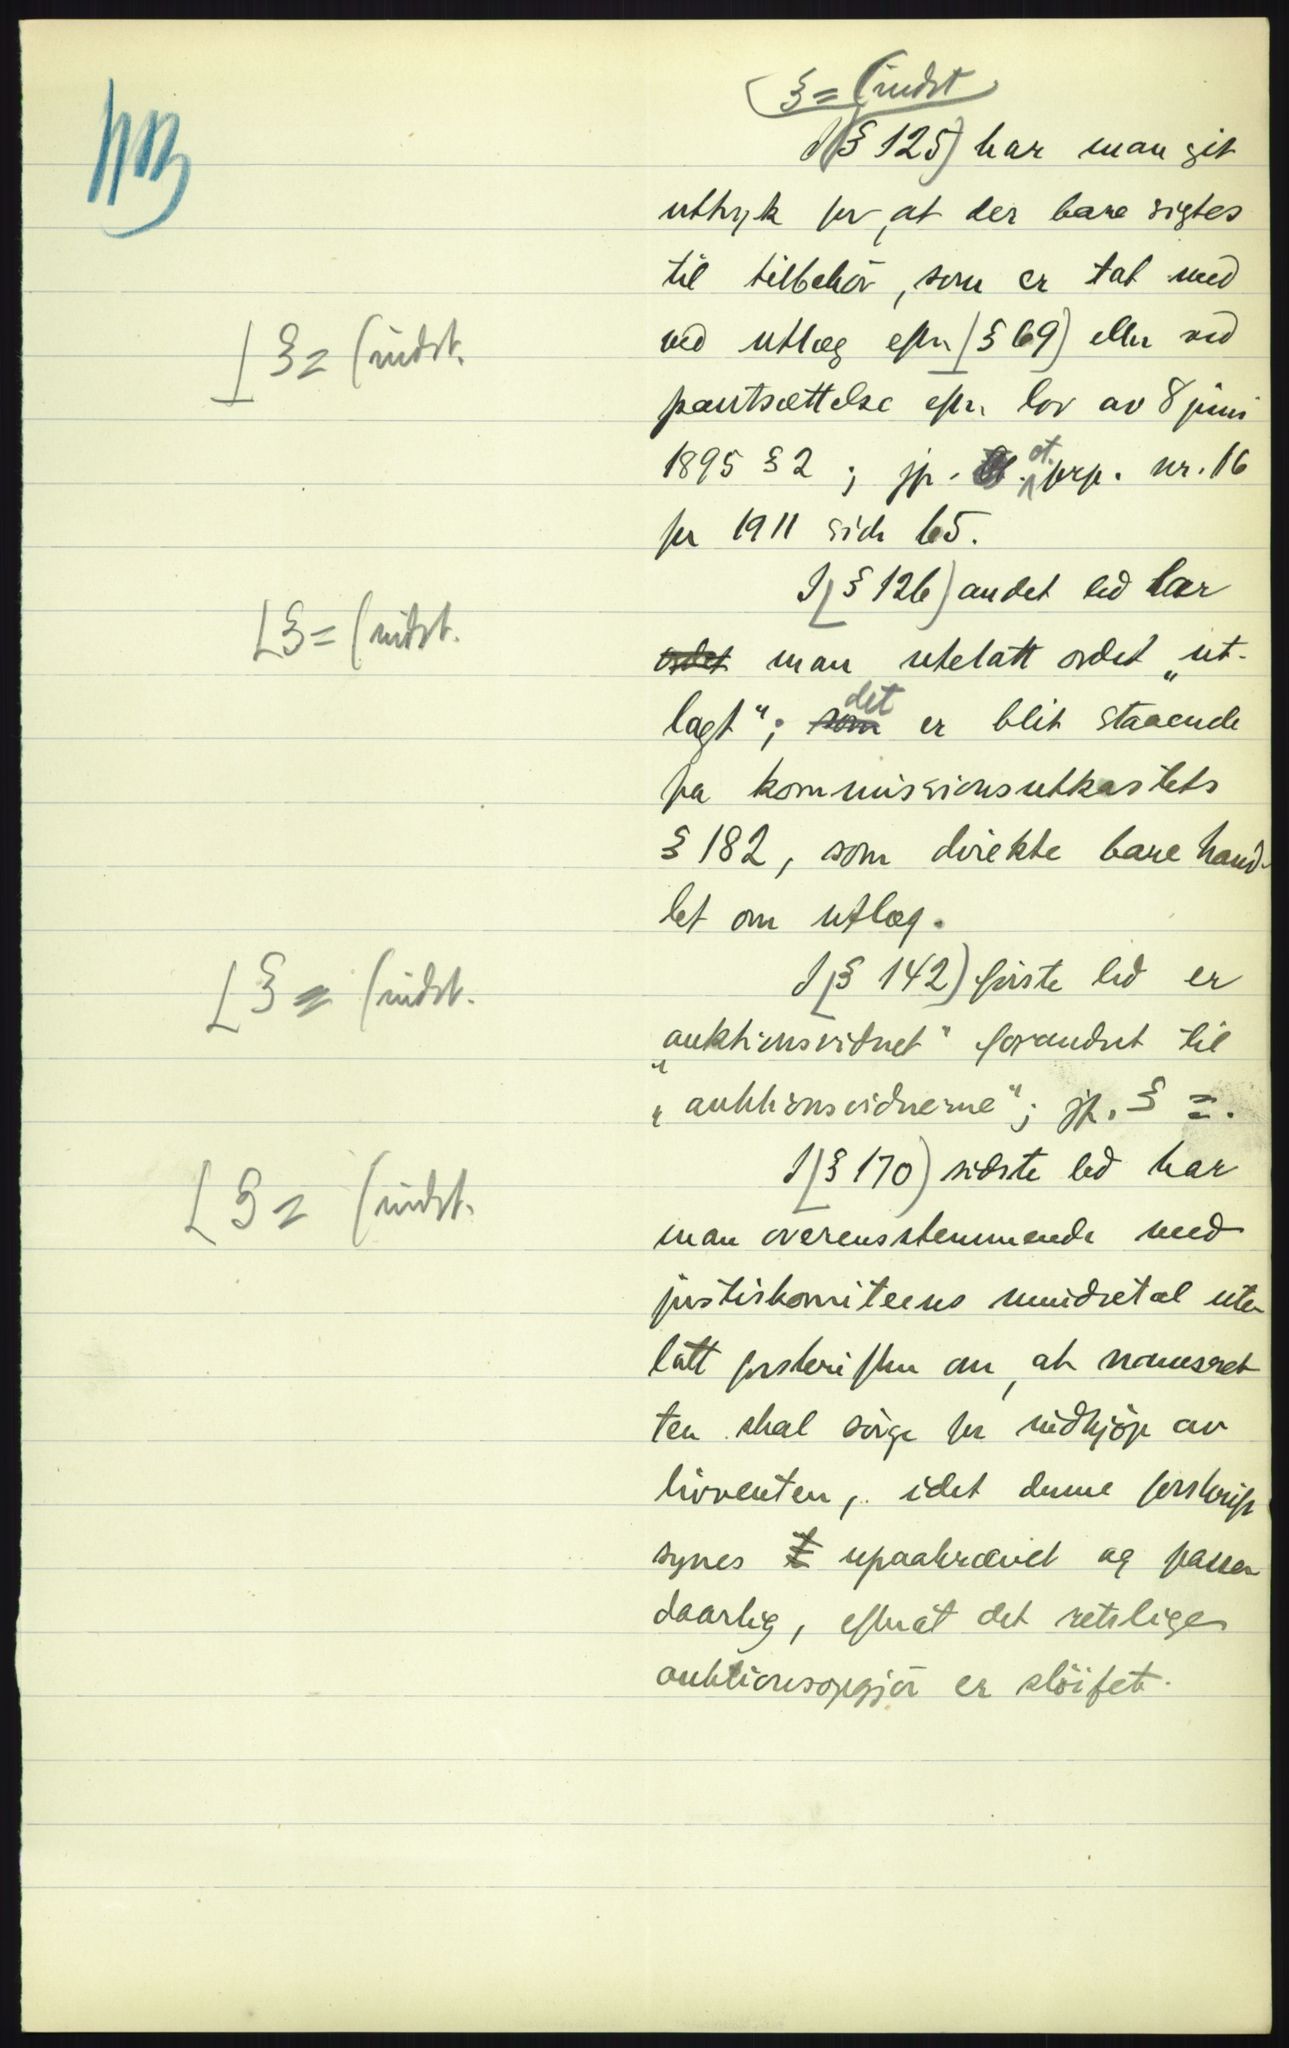 § = (indst
NB
I (§ 125) har man git
uttryk for, at der bare sigtes
til tilbehör, som er tat med
⊥ § = (indst.
ved utlæg efter (§ 69) eller ved
pantsættelse efter lov av 8 juni
1895 § 2 ; jfr. ot. prp. nr. 16
for 1911 side 65.
I (§ 126) andet led har
L § = (indst.
ordet man utelatt ordet „ut-
lagt"; som det er blit staaende
fra kommissionsutkastets
§ 182, som direkte bare hand-
let om utlæg.
I (§ 142) første led er
L § = (indst.
„auktionsvidnet" forandret til
„auktionsvidnerne"; jfr. § =.
I (§ 170) sidste led har
L § = (indst.
man overensstemmende med
justiskomiteens mindretal ute-
latt forskriften om, at namsret
ten skal sörge for indkjöp av
livrenten, idet denne forskrift
synes upaakrævet og passer
daarlig, efterat det retslige
auktionsopgjör er slöifet.